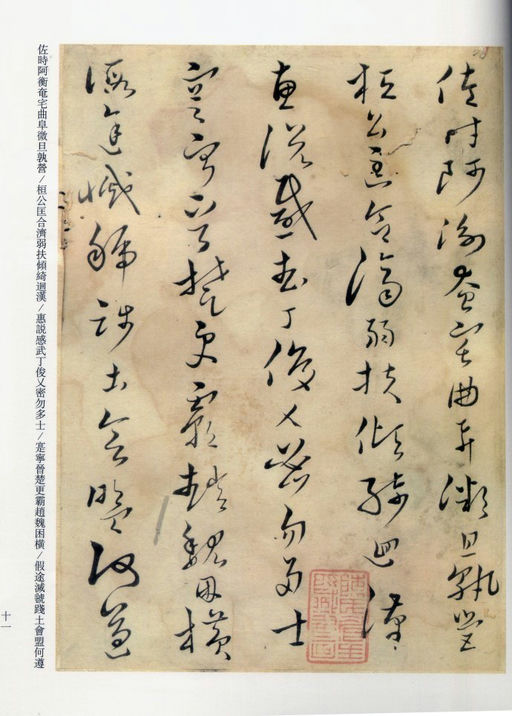 佐時阿衡奄宅曲阜微旦孰營
桓公匡合濟弱扶傾綺迴漢
惠説感武丁俊乂密勿多士
寔寧晉楚更霸趙魏困橫
假途滅虢踐土會盟何遵
佐時阿衡奄宅曲阜微旦孰營/桓公匡合濟弱扶傾綺迴漢/惠説感武丁俊乂密勿多士/寔寧晉楚更霸趙魏困橫/假途滅虢踐土會盟何遵
十一